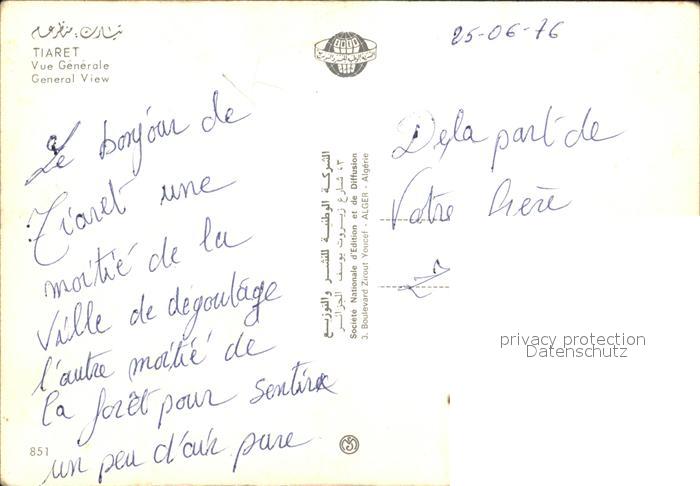 تيارت: منظر عام
TIARET
Vue Générale
General View
25-06-76
Le bonjour de
Tiaret une
moitié de la
ville de dégoutage
l'autre moitié de
la forêt pour sentire
un peu d'air pure
851
الشركة الوطنية للنشر والتوزيع
٣، شارع زيروت يوسف الجزائر
Société Nationale d'Edition et de Diffusion
3, Boulevard Zirout Youcef - ALGER - Algérie
De la part de
Votre frère
privacy protection
Datenschutz